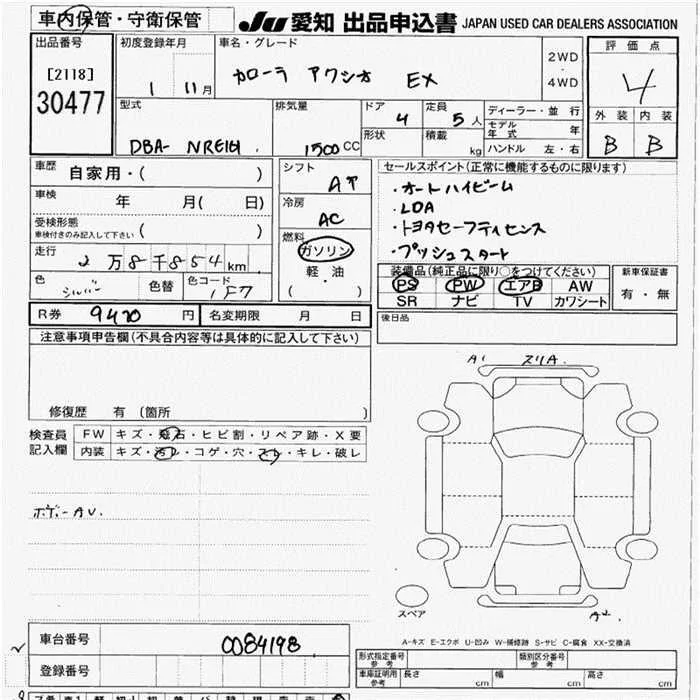 車内保管・守衛保管
JU 愛知 出品申込書 JAPAN USED CAR DEALERS ASSOCIATION
出品番号
[2118]
30477
初度登録年月
1 11月
車名・グレード
カローラ アクシオ EX
2WD
・
4WD
評価点
4
外装 内装
B B
型式
DBA- NRE161
排気量
1500CC
ドア
4
定員
5人
形状
積載
kg
ディーラー・並行
モデル年式 年
ハンドル 左・右
車歴
自家用・( )
車検
年 月( 日)
受検形態
車検付きのみ記入して下さい ( )
走行
2万8千854km
色
シルバー
色替
色コード
1F7
シフト
AT
冷房
AC
燃料
ガソリン
軽・油
( )
セールスポイント(正常に機能するものに限ります)
・オートハイビーム
・LDA
・トヨタセーフティセンス
・プッシュスタート
装備品(純正品に限り○をつけてください)
PS PW エアB AW
SR ナビ TV カワシート
新車保証書
有・無
R券 9470円
名変期限 月 日
後日品
注意事項申告欄(不具合内容等は具体的に記入して下さい)
修復歴 有(箇所 )
検査員
記入欄
FW キズ・飛石・ヒビ割・リペア跡・X要
内装 キズ・汚れ・コゲ・穴・スレ・キレ・破レ
ボデーAU.
A1 スリA.
スペア
A2
A-キズ E-エクボ U-凹み W-補修跡 S-サビ C-腐食 XX-交換済
車台番号
0084198
登録番号
形式指定番号
参考
類別区分番号
参考
車庫証明用
参考
長さ cm 幅 cm 高さ cm